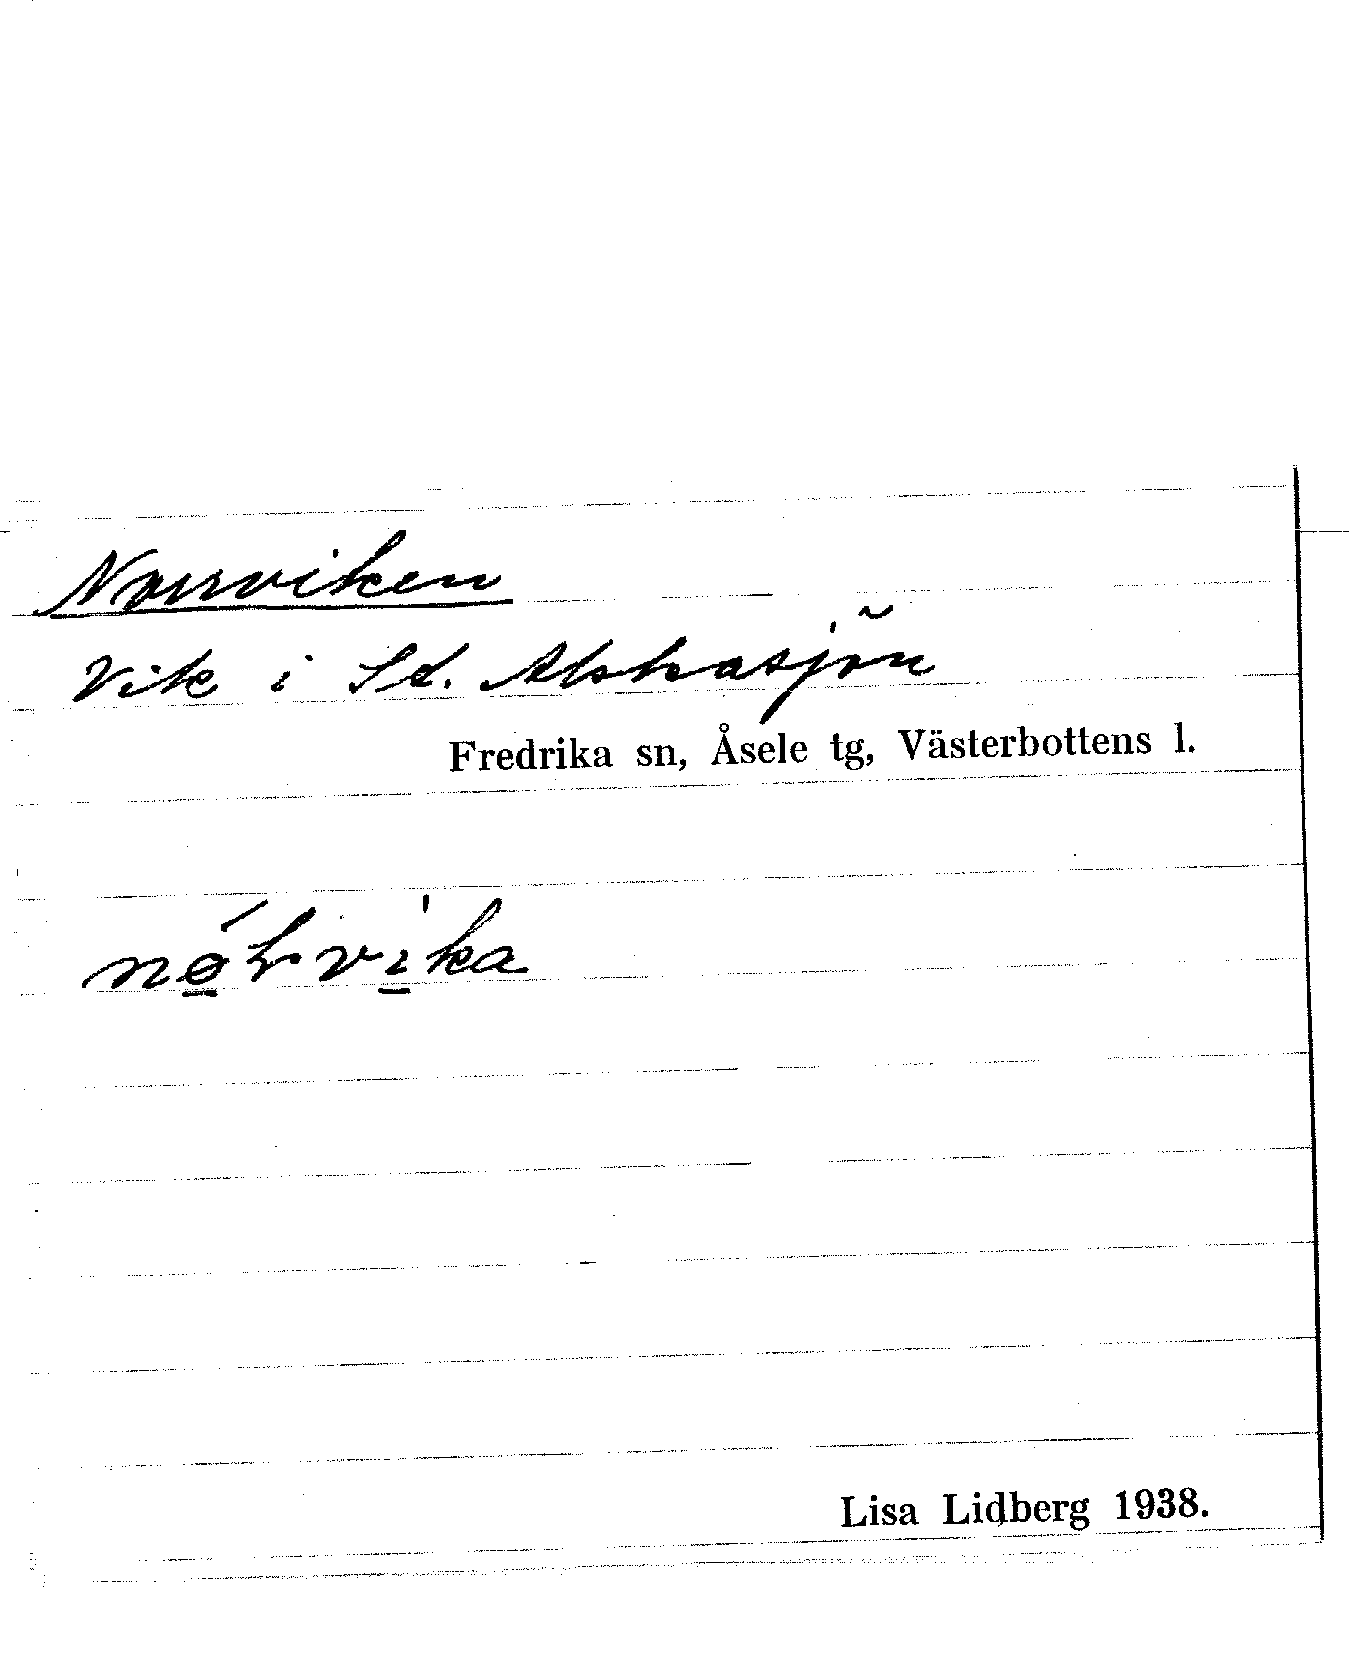 Norrviken
Vik i St. Abbasjön
Fredrika sn, Åsele tg, Västerbottens l.
Lisa Lidberg 1938.